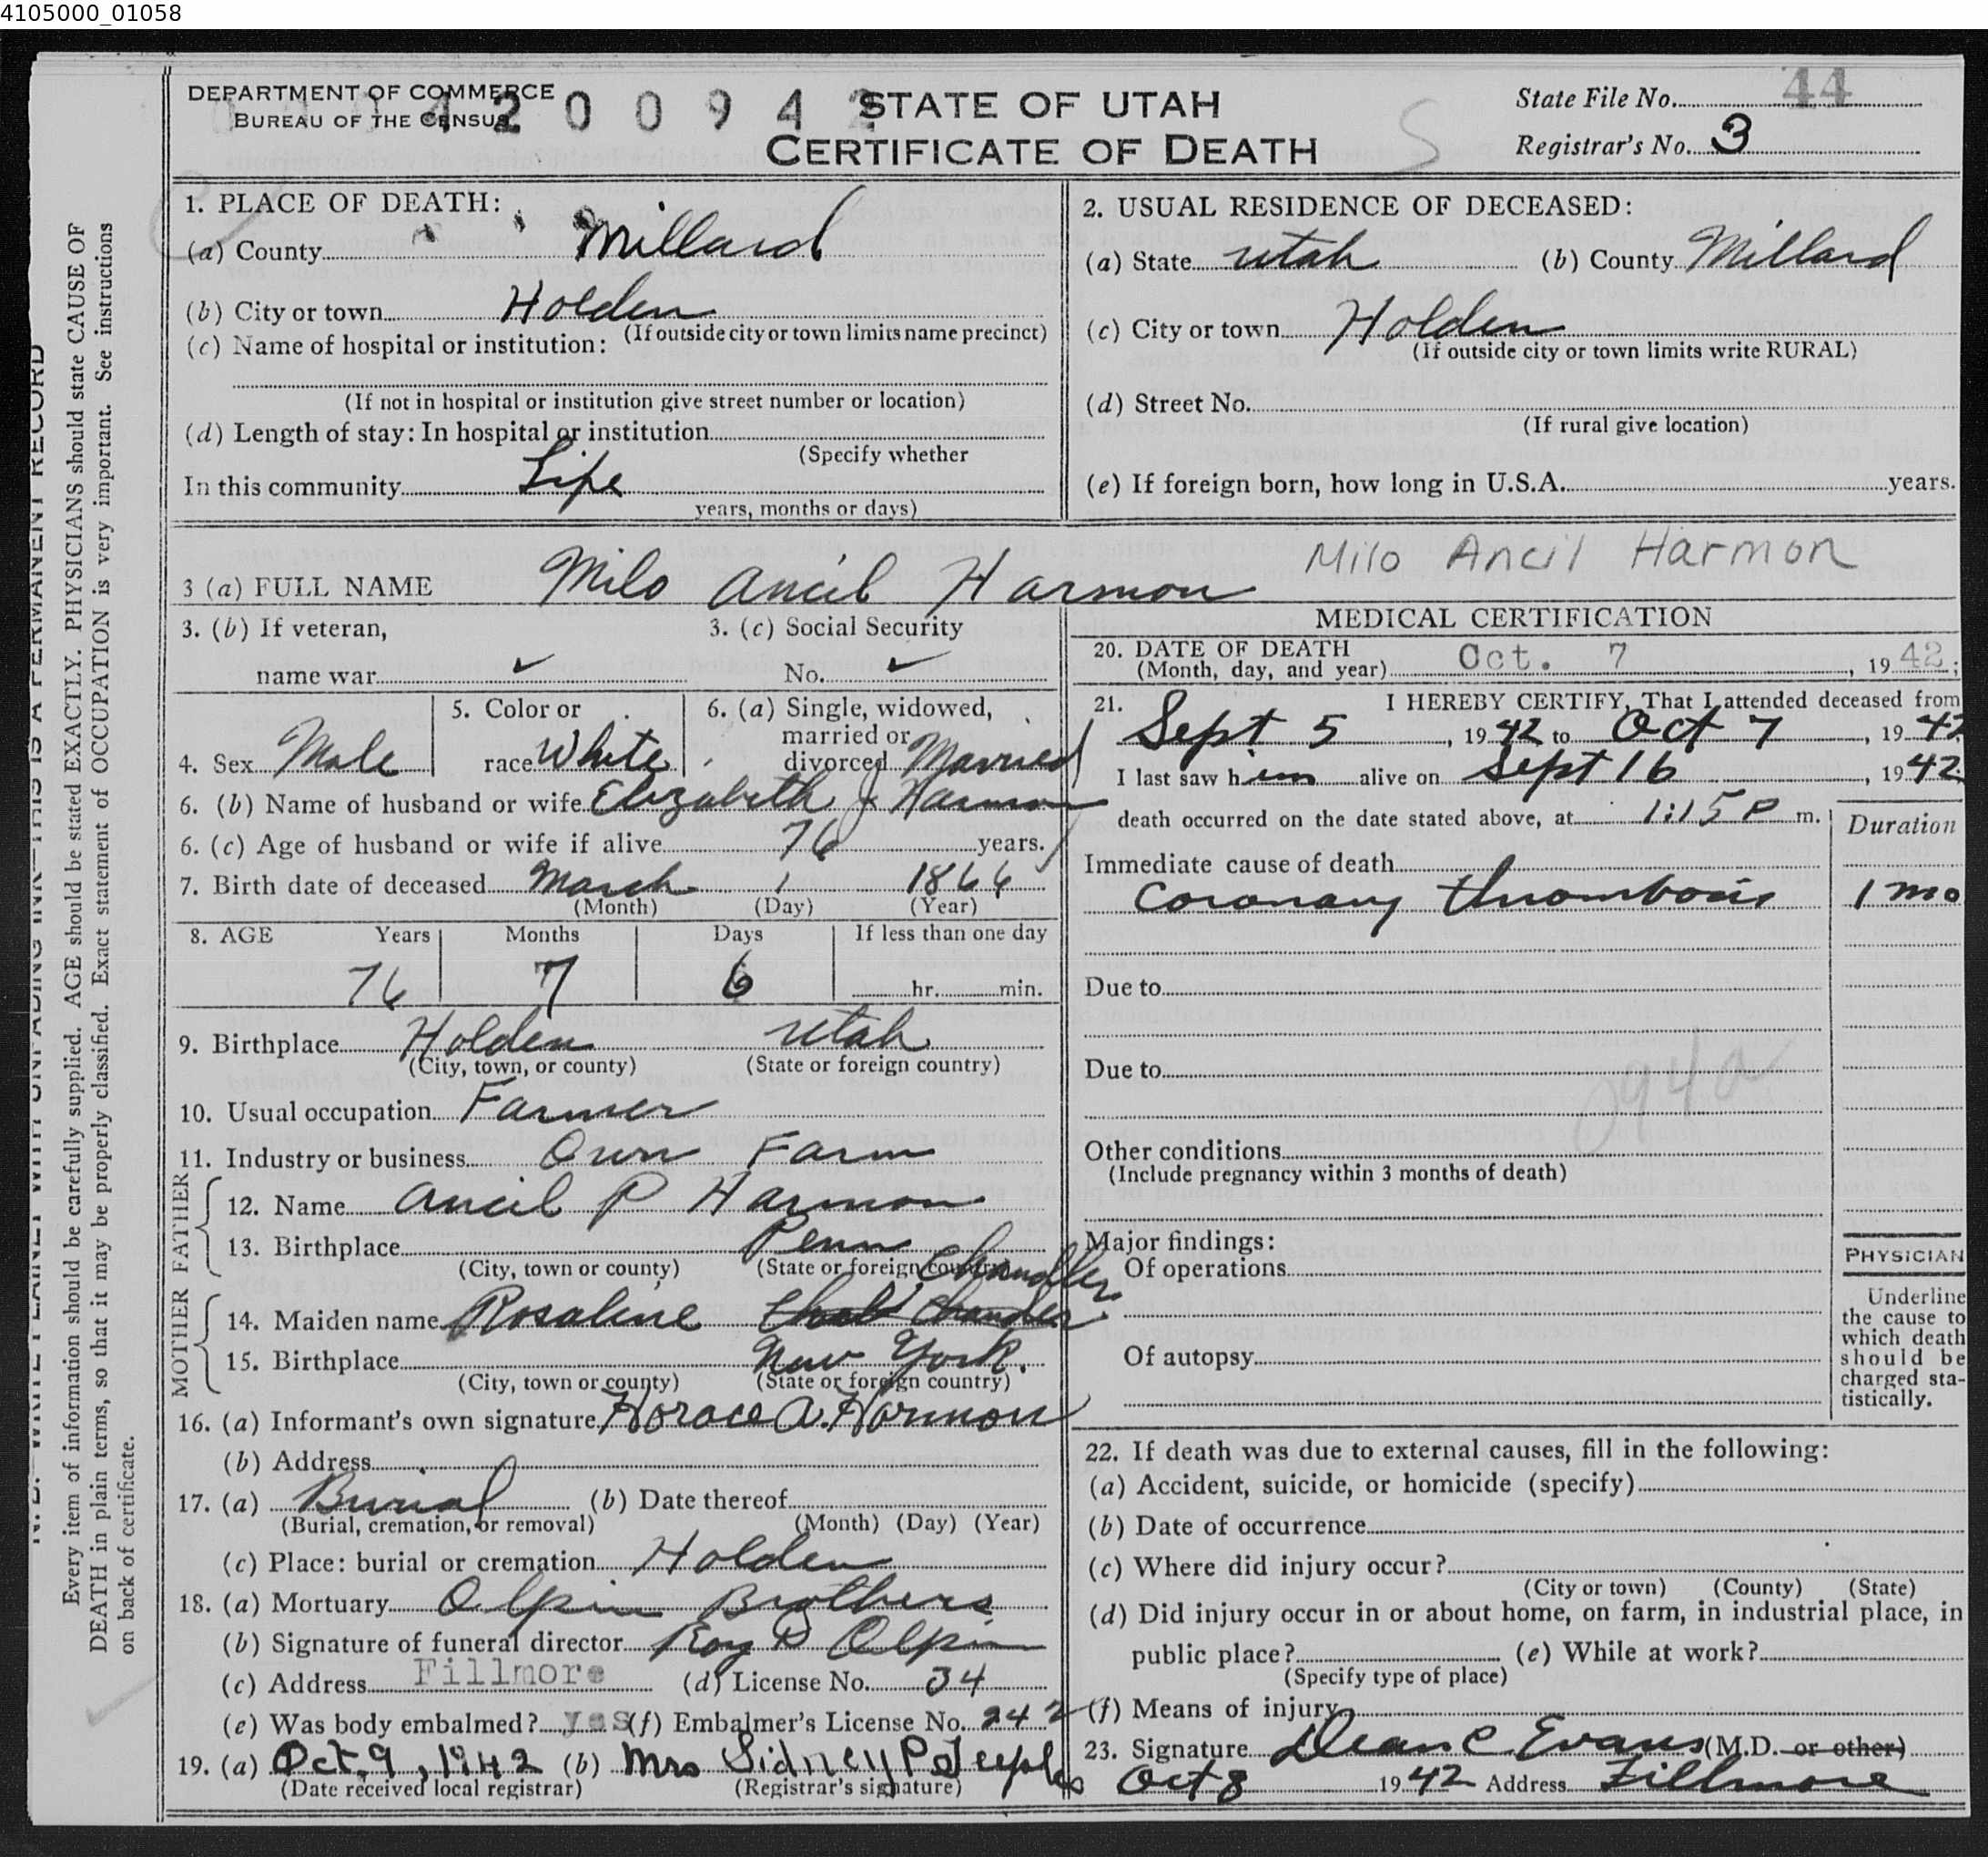 4105000_01058
DEPARTMENT OF COMMERCE
BUREAU OF THE CENSUS
4 2 0 0 9 4 2
STATE OF UTAH
CERTIFICATE OF DEATH
State File No. 44
Registrar's No. 3
Every item of information should be carefully supplied. AGE should be stated EXACTLY. PHYSICIANS should state CAUSE OF
DEATH in plain terms, so that it may be properly classified. Exact statement of OCCUPATION is very important. See instructions
on back of certificate.
1. PLACE OF DEATH:
(a) County Millard
(b) City or town Holden
(If outside city or town limits name precinct)
(c) Name of hospital or institution:
(If not in hospital or institution give street number or location)
(d) Length of stay: In hospital or institution
(Specify whether
In this community Life
years, months or days)
2. USUAL RESIDENCE OF DECEASED:
(a) State Utah (b) County Millard
(c) City or town Holden
(If outside city or town limits write RURAL)
(d) Street No.
(If rural give location)
(e) If foreign born, how long in U.S.A. years.
3 (a) FULL NAME Milo Ancil Harmon Milo Ancil Harmon
3. (b) If veteran,
name war ✓
3. (c) Social Security
No. ✓
4. Sex Male
5. Color or
race White
6. (a) Single, widowed,
married or
divorced Married
6. (b) Name of husband or wife Elizabeth J Harmon
6. (c) Age of husband or wife if alive 76 years.
7. Birth date of deceased March 1 1866
(Month) (Day) (Year)
8. AGE Years Months Days If less than one day
76 7 6 hr. min.
9. Birthplace Holden Utah
(City, town, or county) (State or foreign country)
10. Usual occupation Farmer
11. Industry or business Own Farm
FATHER
12. Name Ancil P Harmon
13. Birthplace Penn
(City, town or county) (State or foreign country)
MOTHER
Chandler
14. Maiden name Rosaline Chandler
15. Birthplace New York.
(City, town or county) (State or foreign country)
16. (a) Informant's own signature Horace A. Harmon
(b) Address
17. (a) Burial (b) Date thereof
(Burial, cremation, or removal) (Month) (Day) (Year)
(c) Place: burial or cremation Holden
18. (a) Mortuary Olpin Brothers
(b) Signature of funeral director Roy D Olpin
(c) Address Fillmore (d) License No. 34
(e) Was body embalmed? yes (f) Embalmer's License No. 242
19. (a) Oct. 9, 1942 (b) Mrs Sidney P Teeples
(Date received local registrar) (Registrar's signature)
MEDICAL CERTIFICATION
20. DATE OF DEATH
(Month, day, and year) Oct. 7, 1942;
21. I HEREBY CERTIFY, That I attended deceased from
Sept 5, 1942 to Oct 7, 1942
I last saw him alive on Sept 16, 1942
death occurred on the date stated above, at 1:15 P m.
Duration
Immediate cause of death
Coronary thrombosis 1 mo
Due to
Due to
94a
Other conditions
(Include pregnancy within 3 months of death)
Major findings:
Of operations
Of autopsy
PHYSICIAN
Underline
the cause to
which death
should be
charged sta-
tistically.
22. If death was due to external causes, fill in the following:
(a) Accident, suicide, or homicide (specify)
(b) Date of occurrence
(c) Where did injury occur?
(City or town) (County) (State)
(d) Did injury occur in or about home, on farm, in industrial place, in
public place? (e) While at work?
(Specify type of place)
(f) Means of injury
23. Signature Dean C Evans (M.D. or other)
Oct 8 1942 Address Fillmore